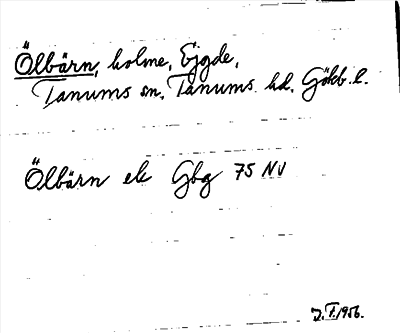 Ölbärn, holme, Ejgde,
Tanums sn, Tanums hd. Götb. l.
Ölbärn ek Gbg 75 NV
J.F. 1956.